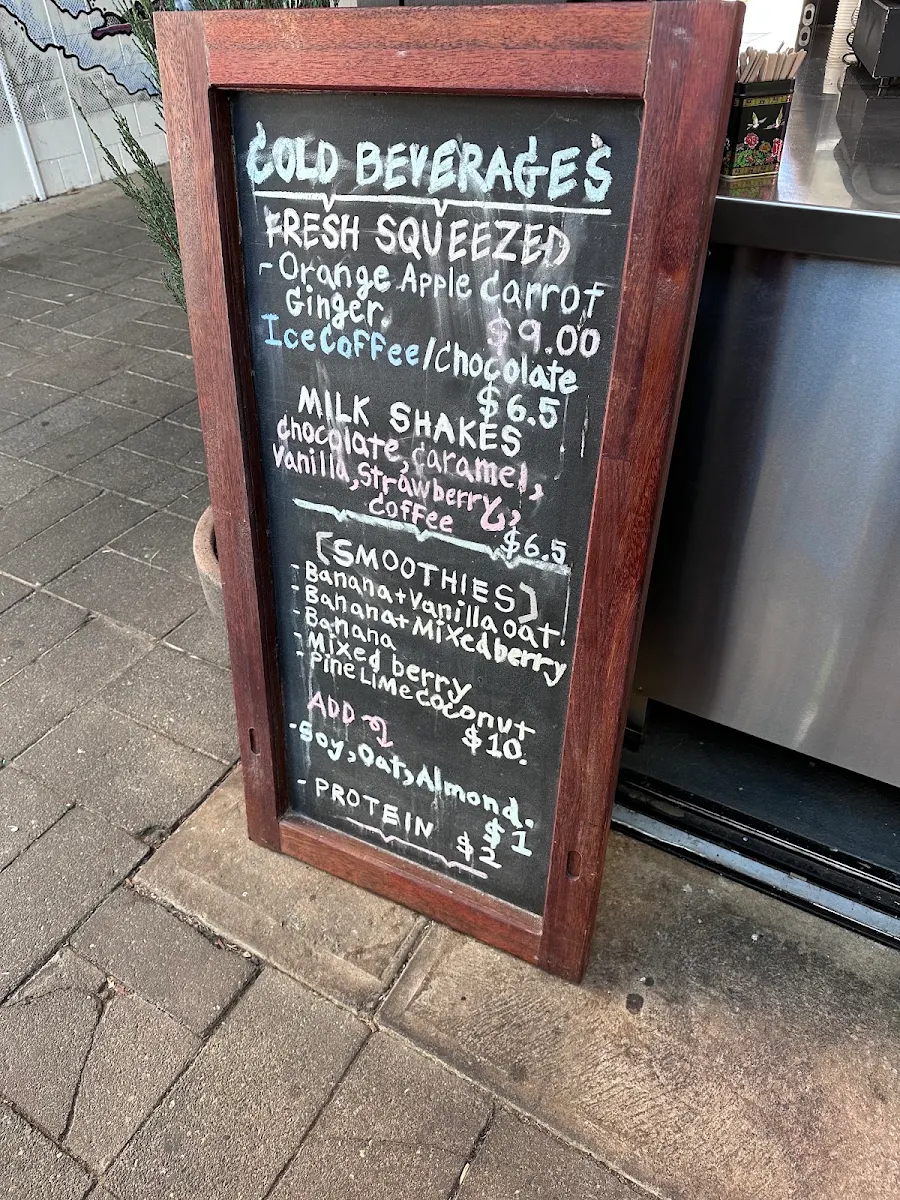 COLD BEVERAGES
FRESH SQUEEZED
- Orange Apple Carrot
Ginger. $9.00
Ice Coffee/Chocolate
$6.5
MILK SHAKES
chocolate, caramel,
Vanilla, Strawberry,
Coffee
$6.5
[SMOOTHIES]
- Banana + Vanilla oat
- Banana + Mixed berry
- Banana
- Mixed berry
- Pine Lime Coconut
$10.
ADD
- Soy, Oat, Almond.
$1
- PROTEIN $2